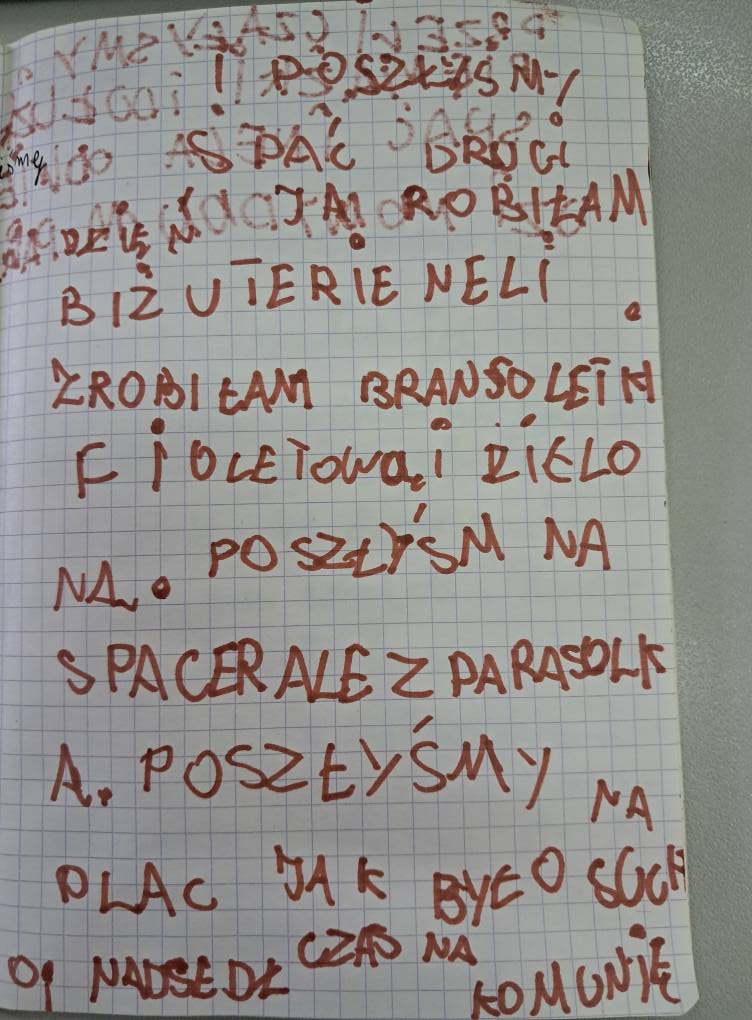 ! POSZŁYŚMY
SPAĆ DRUGI
DZIĘŃ JA ROBIŁAM
BIŻUTERIE NELI .
ZROBIŁAM BRANSOLETK
FIOLETOWĄ I ZIELO
NĄ. POSZŁYŚM NA
SPACER ALE Z PARASOLK
Ą. POSZŁYŚMY NA
PLAC JAK BYŁO SUCH
O, NADSEDŁ CZAS NA KOMUNIĘ